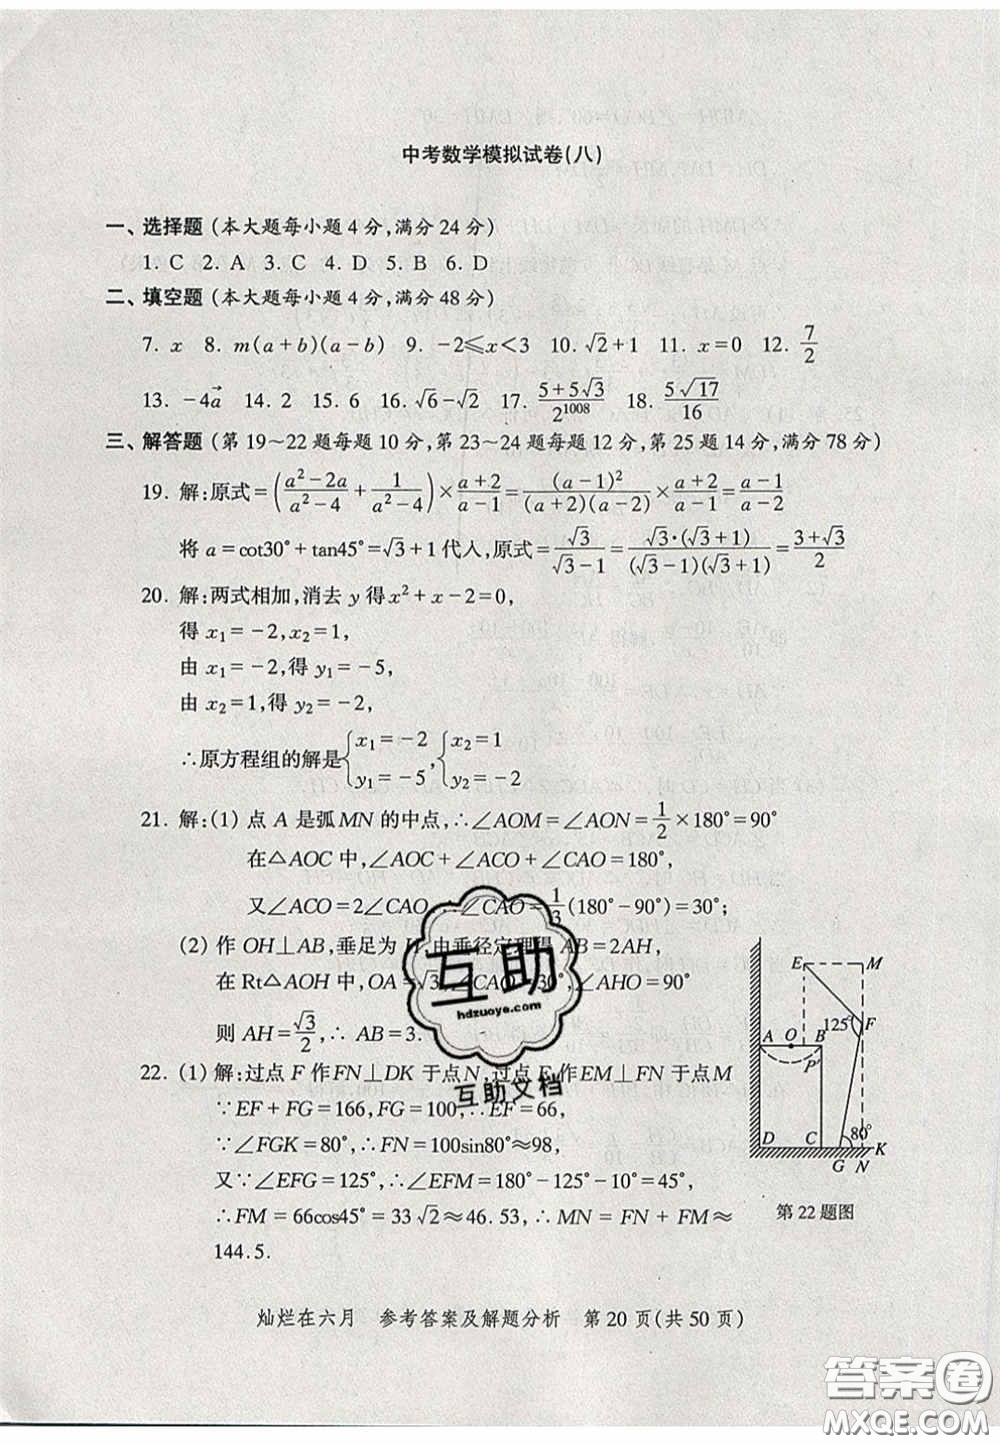 中考数学模拟试卷(八)
一、选择题 (本大题每小题4分,满分24分)
1. C 2. A 3. C 4. D 5. B 6. D
二、填空题 (本大题每小题4分,满分48分)
7. x 8. m(a+b)(a-b) 9. -2⩽x<3 10. √2+1 11. x=0 12. 7/2
13. -4a⃗ 14. 2 15. 6 16. √6-√2 17. (5+5√3)/2^1008 18. 5√17/16
三、解答题 (第19~22题每题10分,第23~24题每题12分,第25题14分,满分78分)
19. 解:原式=((a²-2a)/(a²-4)+1/(a²-4))×(a+2)/(a-1)=(a-1)²/((a+2)(a-2))×(a+2)/(a-1)=(a-1)/(a-2)
将a=cot30°+tan45°=√3+1代人,原式=√3/(√3-1)=√3·(√3+1)/((√3-1)(√3+1))=(3+√3)/2
20. 解:两式相加,消去y得x²+x-2=0,
得x₁=-2,x₂=1,
由x₁=-2,得y₁=-5,
由x₂=1,得y₂=-2,
∴原方程组的解是{x₁=-2 y₁=-5,{x₂=1 y₂=-2
21. 解:(1) 点A是弧MN的中点,∴∠AOM=∠AON=1/2×180°=90°
在△AOC中,∠AOC+∠ACO+∠CAO=180°,
又∠ACO=2∠CAO,∴∠CAO=1/3(180°-90°)=30°;
(2) 作OH⊥AB,垂足为H,由垂径定理得AB=2AH,
在Rt△AOH中,OA=√3,∠CAO=30°,∠AHO=90°
则AH=√3/2,∴AB=3.
22. (1) 解:过点F作FN⊥DK于点N,过点E作EM⊥FN于点M
∵EF+FG=166,FG=100,∴EF=66,
∵∠FGK=80°,∴FN=100sin80°≈98,
又∵∠EFG=125°,∴∠EFM=180°-125°-10°=45°,
∴FM=66cos45°=33√2≈46.53,∴MN=FN+FM≈
144.5.
E M
125° F
A O B
P
80°
D C K
G N
第22题图
互助
hdzuoye.com
互助文档
灿烂在六月 参考答案及解题分析 第20页(共50页)
答案圈
MXQE.COM